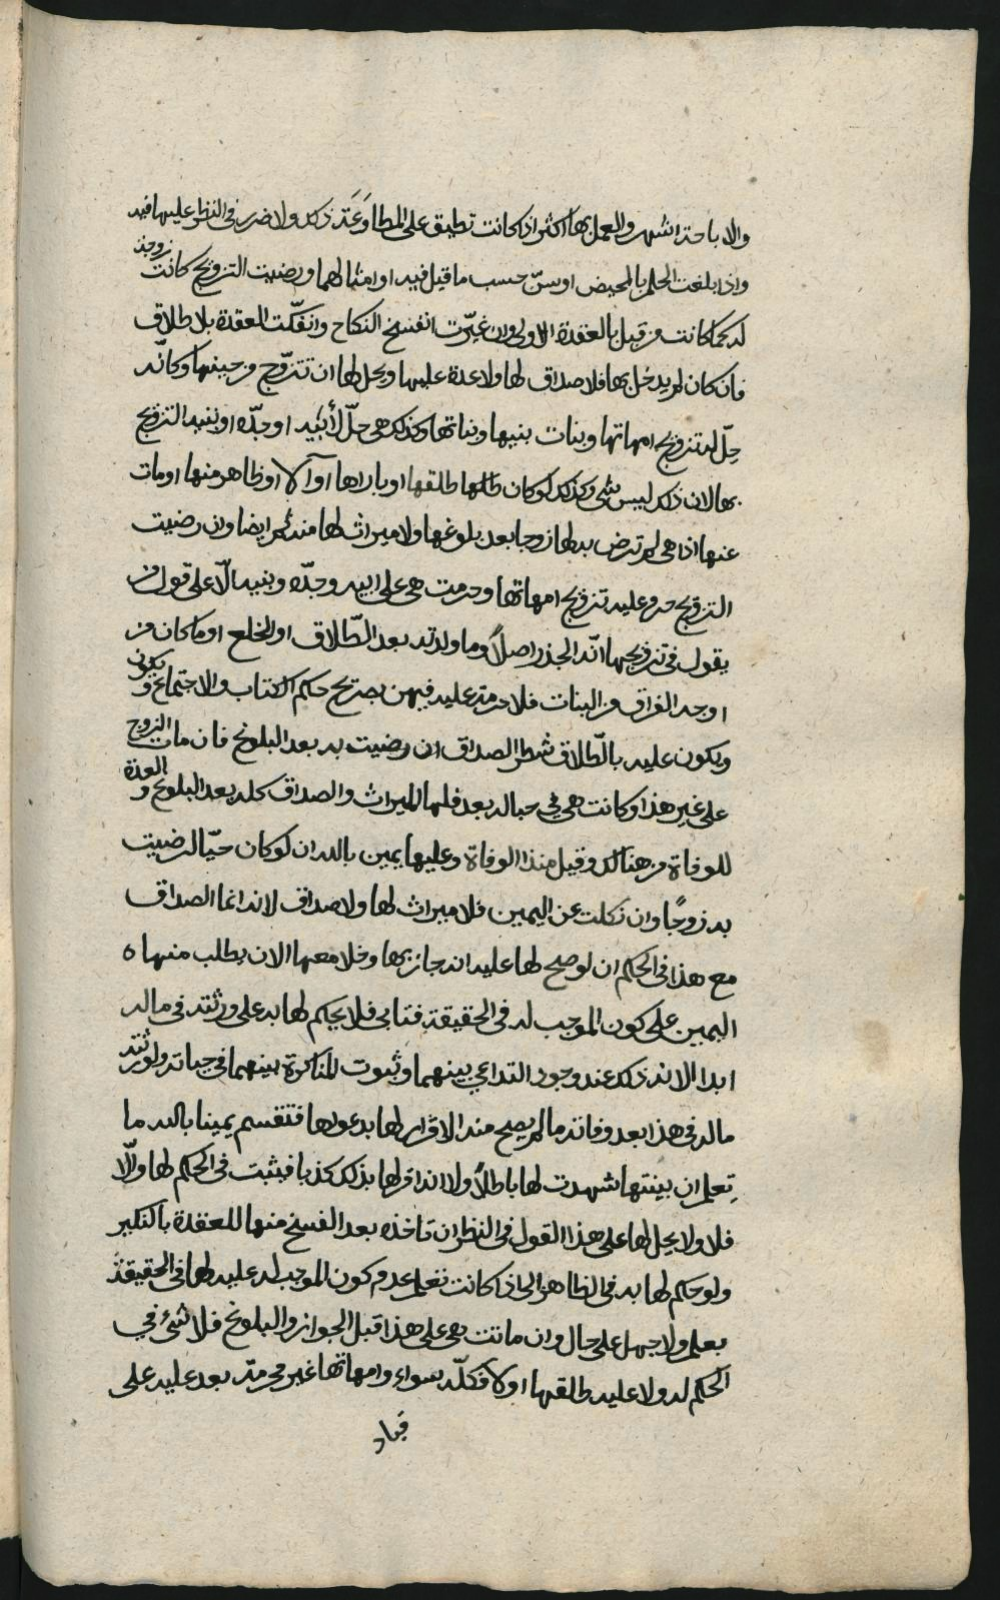 والاباحة اشهر والعمل بها اكثر اذ كانت تطيق على المطاوعة ذلك ولا ضرر في النظر عليها فيه
واذا بلغت الحلم بالمحيض او سنّ حسب ما قيل فيه او امثالهما ورضيت التزويج كانت زوجة
له كما كانت من قبل بالعقدة الاولى وان غيّرت انفسخ النكاح وانفكّت العقدة بلا طلاق
فان كان لم يدخل بها فلا صداق لها ولا عدة عليها ويحل لها ان تتزوّج من حينها وكانّه
حلّ له تزويج امهاتها وبنات بنيها وبناتها وكذلك هي حلّ لأبيه او جدّه او بنيه التزويج
بها لان ذلك ليس شي وكذلك لو كان طلقها او باراها او آلا او ظاهر منها او مات
عنها اذا هي لم ترض به لها زوجا بعد بلوغها ولا ميراث لها منه لم ايضا وان رضيت
التزويج حرم عليه تزويج امهاتها وحرمت هي على ابيه وجدّه وبنيه الّا على قول من
يقول في تزويجها انّه الجذر اصلاً وما ولدته بعد الطّلاق او الخلع او ما كان من
اوجه الفراق من البنات فلا حرمة عليه فيهن بصريح حكم الكتاب والاجتماع و يكون
ويكون عليه بالطّلاق شطر الصداق ان رضيت به بعد البلوغ فان مات الزوج
على غير هذا وكانت هي في حباله بعد فلها الميراث والصداق كله بعد البلوغ و العدة
للوفاة من هنالك وقيل منذ الوفاة وعليها يمين بالله ان لو كان حيّا لرضيت
به زوجًا وان نكلت عن اليمين فلا ميراث لها ولا صداق لانه انما الصداق
مع هذا في الحكم ان لو صح لها عليه انه جاز بها وخلا معها الان يطلب منها ه
اليمين على كون الموجب له في الحقيقة فتابى فلا يحكم لها به على ورثته في ماله
ابدا الا انه ذلك عند وجود التداعي بينهما وثبوت المناكرة بينهما في حياته ولورثته
ماله في هذا بعد وفاته ما لم يصح منه الاقرار لها بدعواها فتقسم يمينا بالله ما
تعلم ان بينتها شهدت لها باطلاً ولا انه اقر لها بذلك كذبا فيثبت في الحكم لها والّا
فلا ولا يحل لها على هذا القول في النظر ان تاخذه بعد الفسخ منها للعقدة بالنكير
ولو حكم لها به في الظاهر الى اذ كانت تعلم عدم كون الموجب له عليه لها في الحقيقة
بعلم ولا جهل على حال وان ماتت هي على هذا قبل الجواز والبلوغ فلا شئ في
الحكم له ولا عليه طلقها اولا فكلّه سواء وامهاتها غير محرمة بعد عليه على
قياد